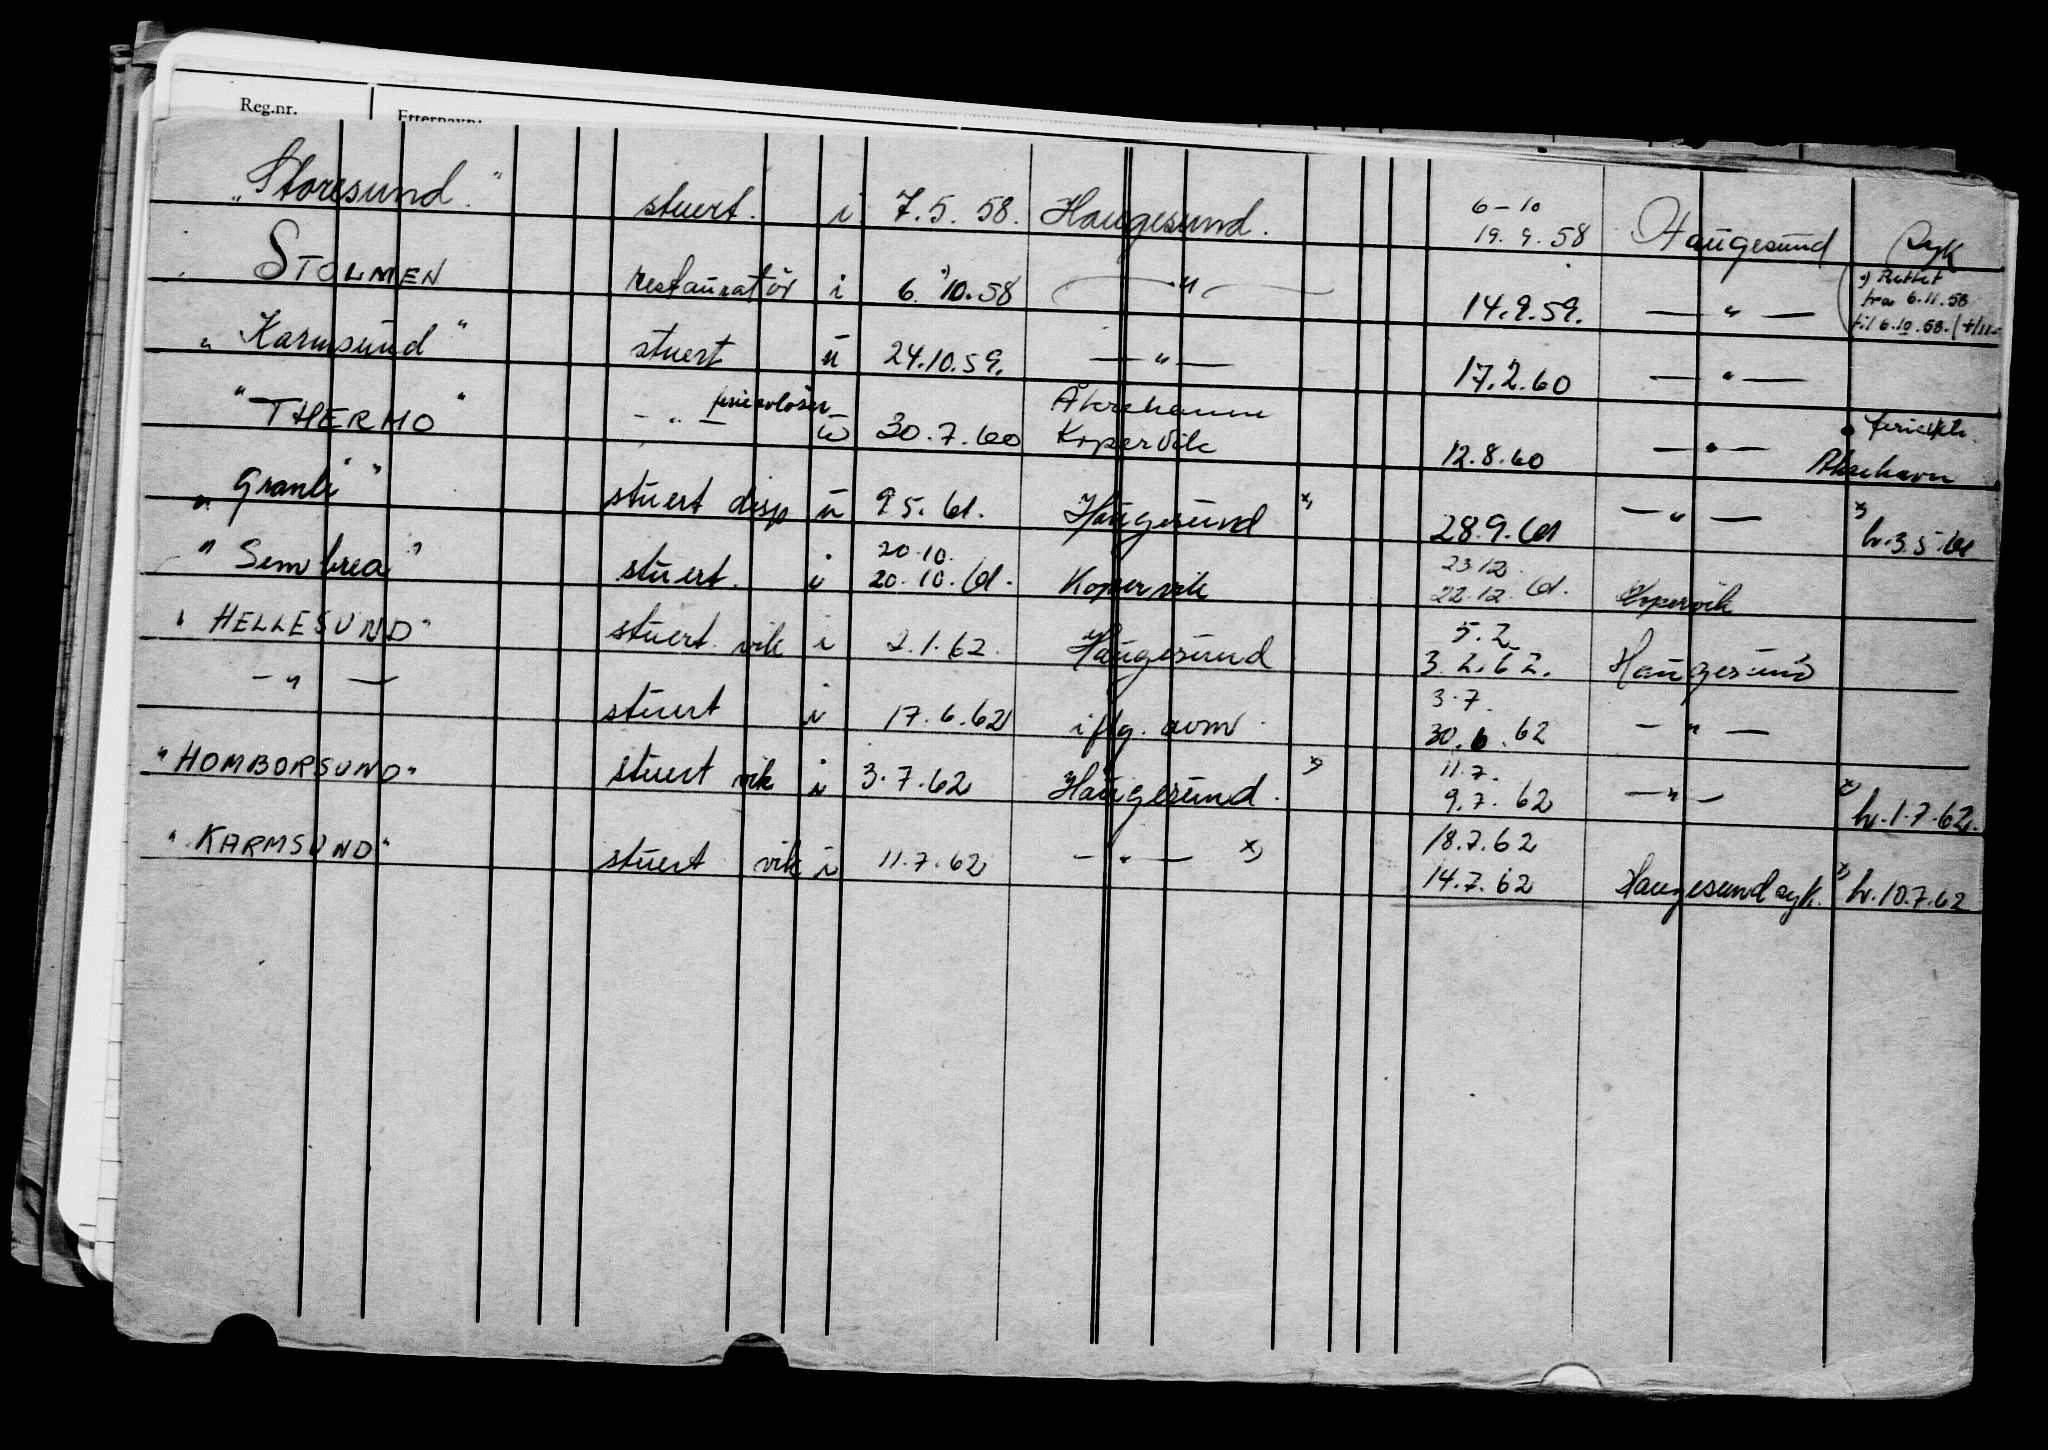 Reg.nr. Etternavn:
"Storesund." stuert. i 7.5.58. Haugesund. 6-10 19.9.58 Haugesund syk
STOLMEN restauratör i 6.*)10.58 — " — 14.9.59. — " — *) Rettet fra 6.11.58 til 6.10.58.
"Karmsund" stuert u 24.10.59. — " — 17.2.60 — " —
"THERMO" — " — ferieavløser u 30.7.60 Åkrehavn Kopervik 12.8.60 — " — Åkrehavn
"Granli" stuert disp u 9.5.61. Haugesund x) 28.9.61 — " — x) hr.3.5.61
"Sembrea" stuert. i 20.10. 20.10.61. Kopervik 23.12. 22.12.61. Kopervik
"HELLESUND" stuert vik i 2.1.62. Haugesund 5.2 3.2.62. Haugesund
— " — stuert i 17.6.62 iflg. avm. 3.7. 30.6.62 — " —
"HOMBORSUND" stuert vik i 3.7.62 Haugesund. x) 11.7. 9.7.62 — " — x) hr.1.7.62.
"KARMSUND" stuert vik i 11.7.62 — " — x) 18.7.62 14.7.62 Haugesund syk. x) hr.10.7.62